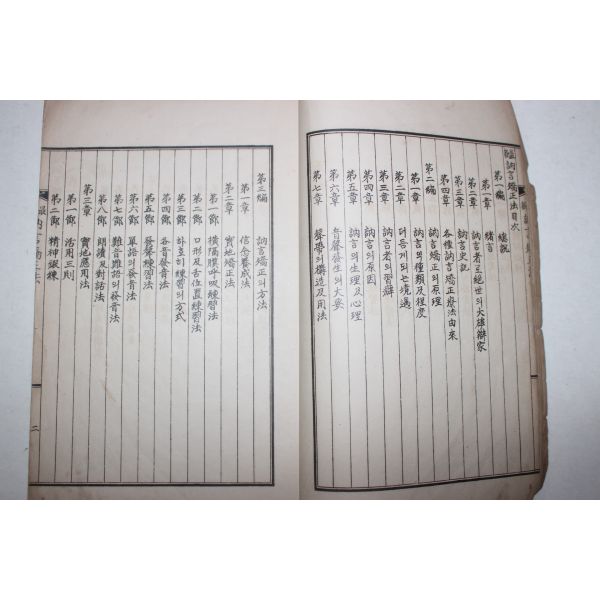 訥言矯正法目次
第一編 總說
第一章 緒言
第二章 訥言者로絕世의大雄辯家
第三章 訥言史記
第四章 各種訥言矯正療法由來
第二編 訥言矯正의原理
第一章 訥言의種類及程度
第二章 더듬게되는境遇
第三章 訥言者의習癖
第四章 訥言의原因
第五章 訥言의生理及心理
第六章 音聲發生의大要
第七章 聲帶의構造及用法
第三編 訥言矯正의方法
第一章 信念養成法
第二章 實地矯正法
第一節 橫隔膜呼吸練習法
第二節 口形及舌位置練習法
第三節 하나히練習의方式
第四節 各音發音法
第五節 發聲練習法
第六節 單語의發音法
第七節 難音難語의發音法
第八節 朗讀及對話法
第三章 實地應用法
第一節 活用三則
第二節 精神鍛鍊
二